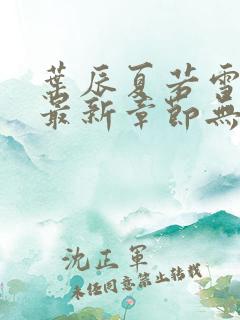 葉辰夏若雪
最新章節無
沈正軍
未经同意禁止转载